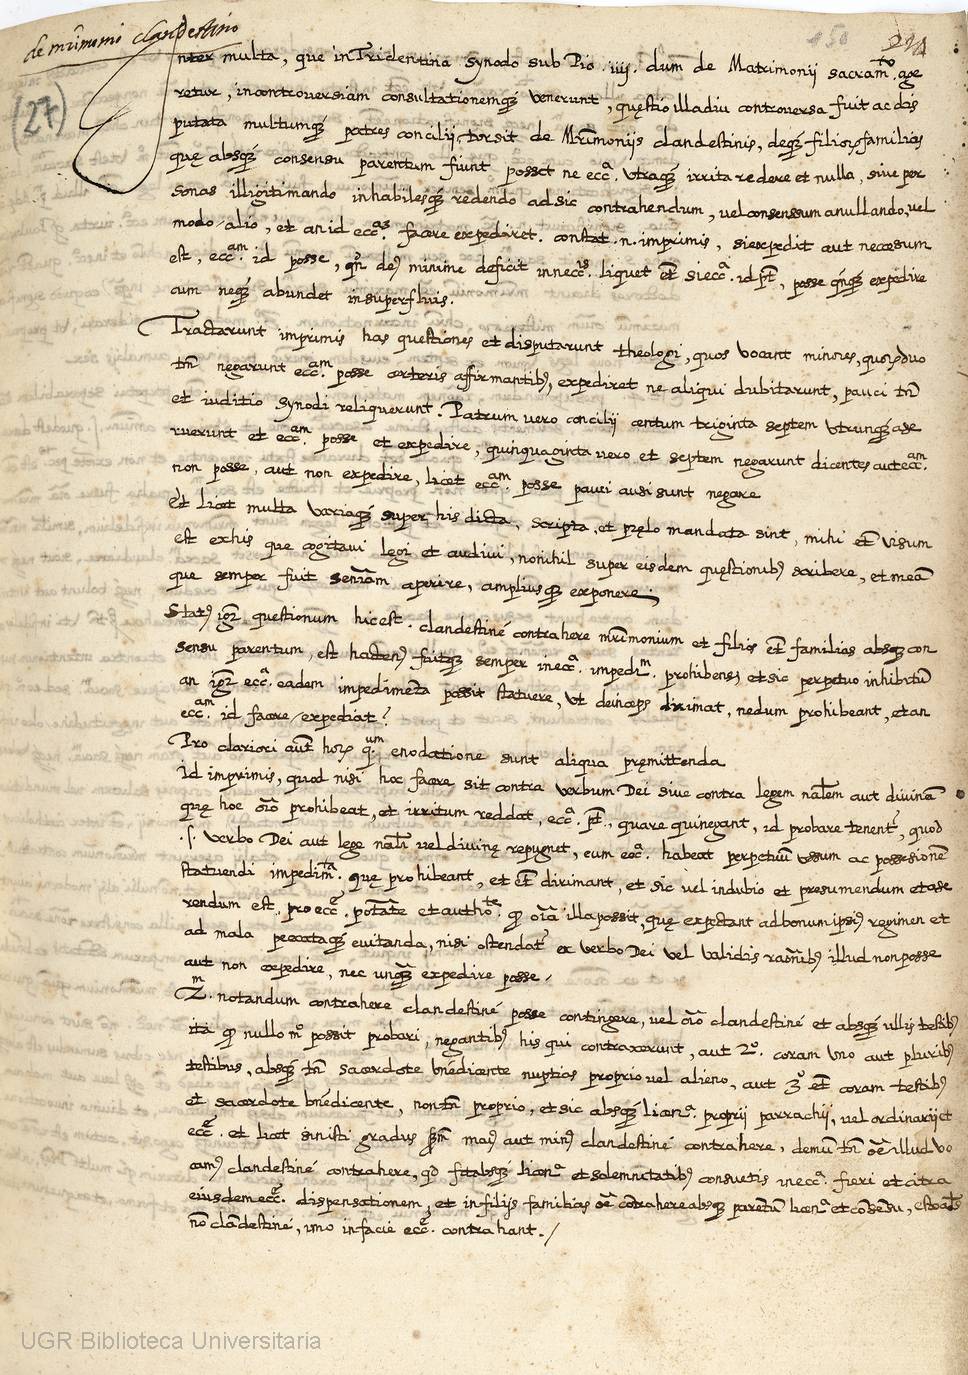 de mr̃imonio clandestino
150
221
(27)
Inter multa, que in Tridentina Synodo sub Pio .iiij. dum de Matrimonij sacram.to age
retur, in controversiam consultationemq̃ venerunt, quęstio illa diu controversa fuit ac dis
putata multumq̃ patres concilij torsit de Mr̃imonijs clandestinis, deq̃ filiorũ familias
quę absq̃ consensu parentum fiunt posset ne ecc.ª utraq̃ irrita redere et nulla, sive per
sonas illigitimando inhabilesq̃ redendo ad sic contrahendum, vel consensum anullando, vel
modo alio, et an id ecc.as facere expediret. constat .n. imprimis, si expedit aut necessum
est, ecc.am id posse, qñ de9 minime deficit in necc.is liquet et̃ si ecc.ª id pt̃, posse qñq̃ expedire
cum neq̃ abundet in superfluis.
Tractarunt imprimis has questiones et disputarunt theologi, quos vocant minores, quorũ duo
tñ negarunt ecc.am posse ceteris affirmantib9, expediret ne aliqui dubitarunt, pauci tñ
et iuditio synodi reliquerunt. Patrum vero concilij centum triginta septem utrunq̃ asse
ruerunt et ecc.am posse et expedire, quinquaginta vero et septem negarunt dicentes aut ecc.am
non posse, aut non expedire, licet ecc.am posse pauci ausi sunt negare
Et licet multa variaq̃ super his dicta, scripta, et pręlo mandata sint, mihi et̃ visum
est ex his que cogitavi legi et audivi, nonihil super eisdem quęstionib9 scribere, et meã
que semper fuit señiam aperire, ampliusq̃ exponere.
Stat9 igr̃ questionum hic est. clandestiné contrahere mr̃imonium et filiis et̃ familias absq̃ con
sensu parentum, est hacten9 fuitq̃ semper in ecc.ª impedi.m prohibens, et sic perpetuo inhibitũ
an igr̃ ecc.ª eadem impedimenta possit statuere, ut deinceps dirimat, nedum prohibeant, et an
ecc.am id facere expediat?
Pro clariori aut̃ horũ q.um enodatione sunt aliqua pręmittenda
Id imprimis, quod nisi hoc facere sit contra verbum Dei sive contra legem nal̃em aut divinã
quę hoc oĩo prohibeat, et irritum reddat, ecc.ª pt̃, quare qui negant, id probare tenent̃, quod
.s. verbo Dei aut lege nal̃i vel divinę repugnet, cum ecc.ª habeat perpetuũ usum ac possesionẽ
statuendi impedim.ta quę prohibeant, et et̃ dirimant, et sic vel in dubio et presumendum et asse
rendum est pro ecc.ę potãte et autho.te q̃ oĩa illa possit, quę expectant ad bonum ipsi9 regimen et
ad mala peccataq̃ evitanda, nisi ostendat̃ ex verbo Dei vel validis raõnib9 illud non posse
aut non expedire, nec unq̃ expedire posse.
2.m notandum contrahere clandestiné posse contingere, vel oĩo clandestiné et absq̃ ullis testib9
ita q̃ nullo m.º possit probari, negantib9 his qui contraxerunt, aut 2.º coram uno aut plurib9
testibus, absq̃ tñ sacerdote bñedicente nuptias proprio vel alieno, aut 3.º et̃ coram testib9
et sacerdote bñedicente, non tñ proprio, et sic absq̃ licen.ª proprij parrochij, vel ordinarij et
ecc.ę. et licet sint isti gradus maĩ9 aut min9 clandestiné contrahere, demũ tñ oẽ illud vo
cam9 clandestiné contrahere, qd̃ fit absq̃ licen.ª et solemnitatib9 consuetis in ecc.ª fieri et citra
eiusdem ecc.ę dispensationem, et in filijs familias oẽ contrahere absq̃ parentũ licen.ª et consensu, esto
nõ clandestiné, imo in facie ecc.ę contrahant.
UGR Biblioteca Universitaria